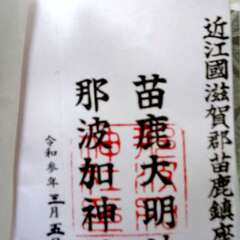 近江國滋賀郡苗鹿鎮座
苗鹿大明
那波加神
令和参年三月五